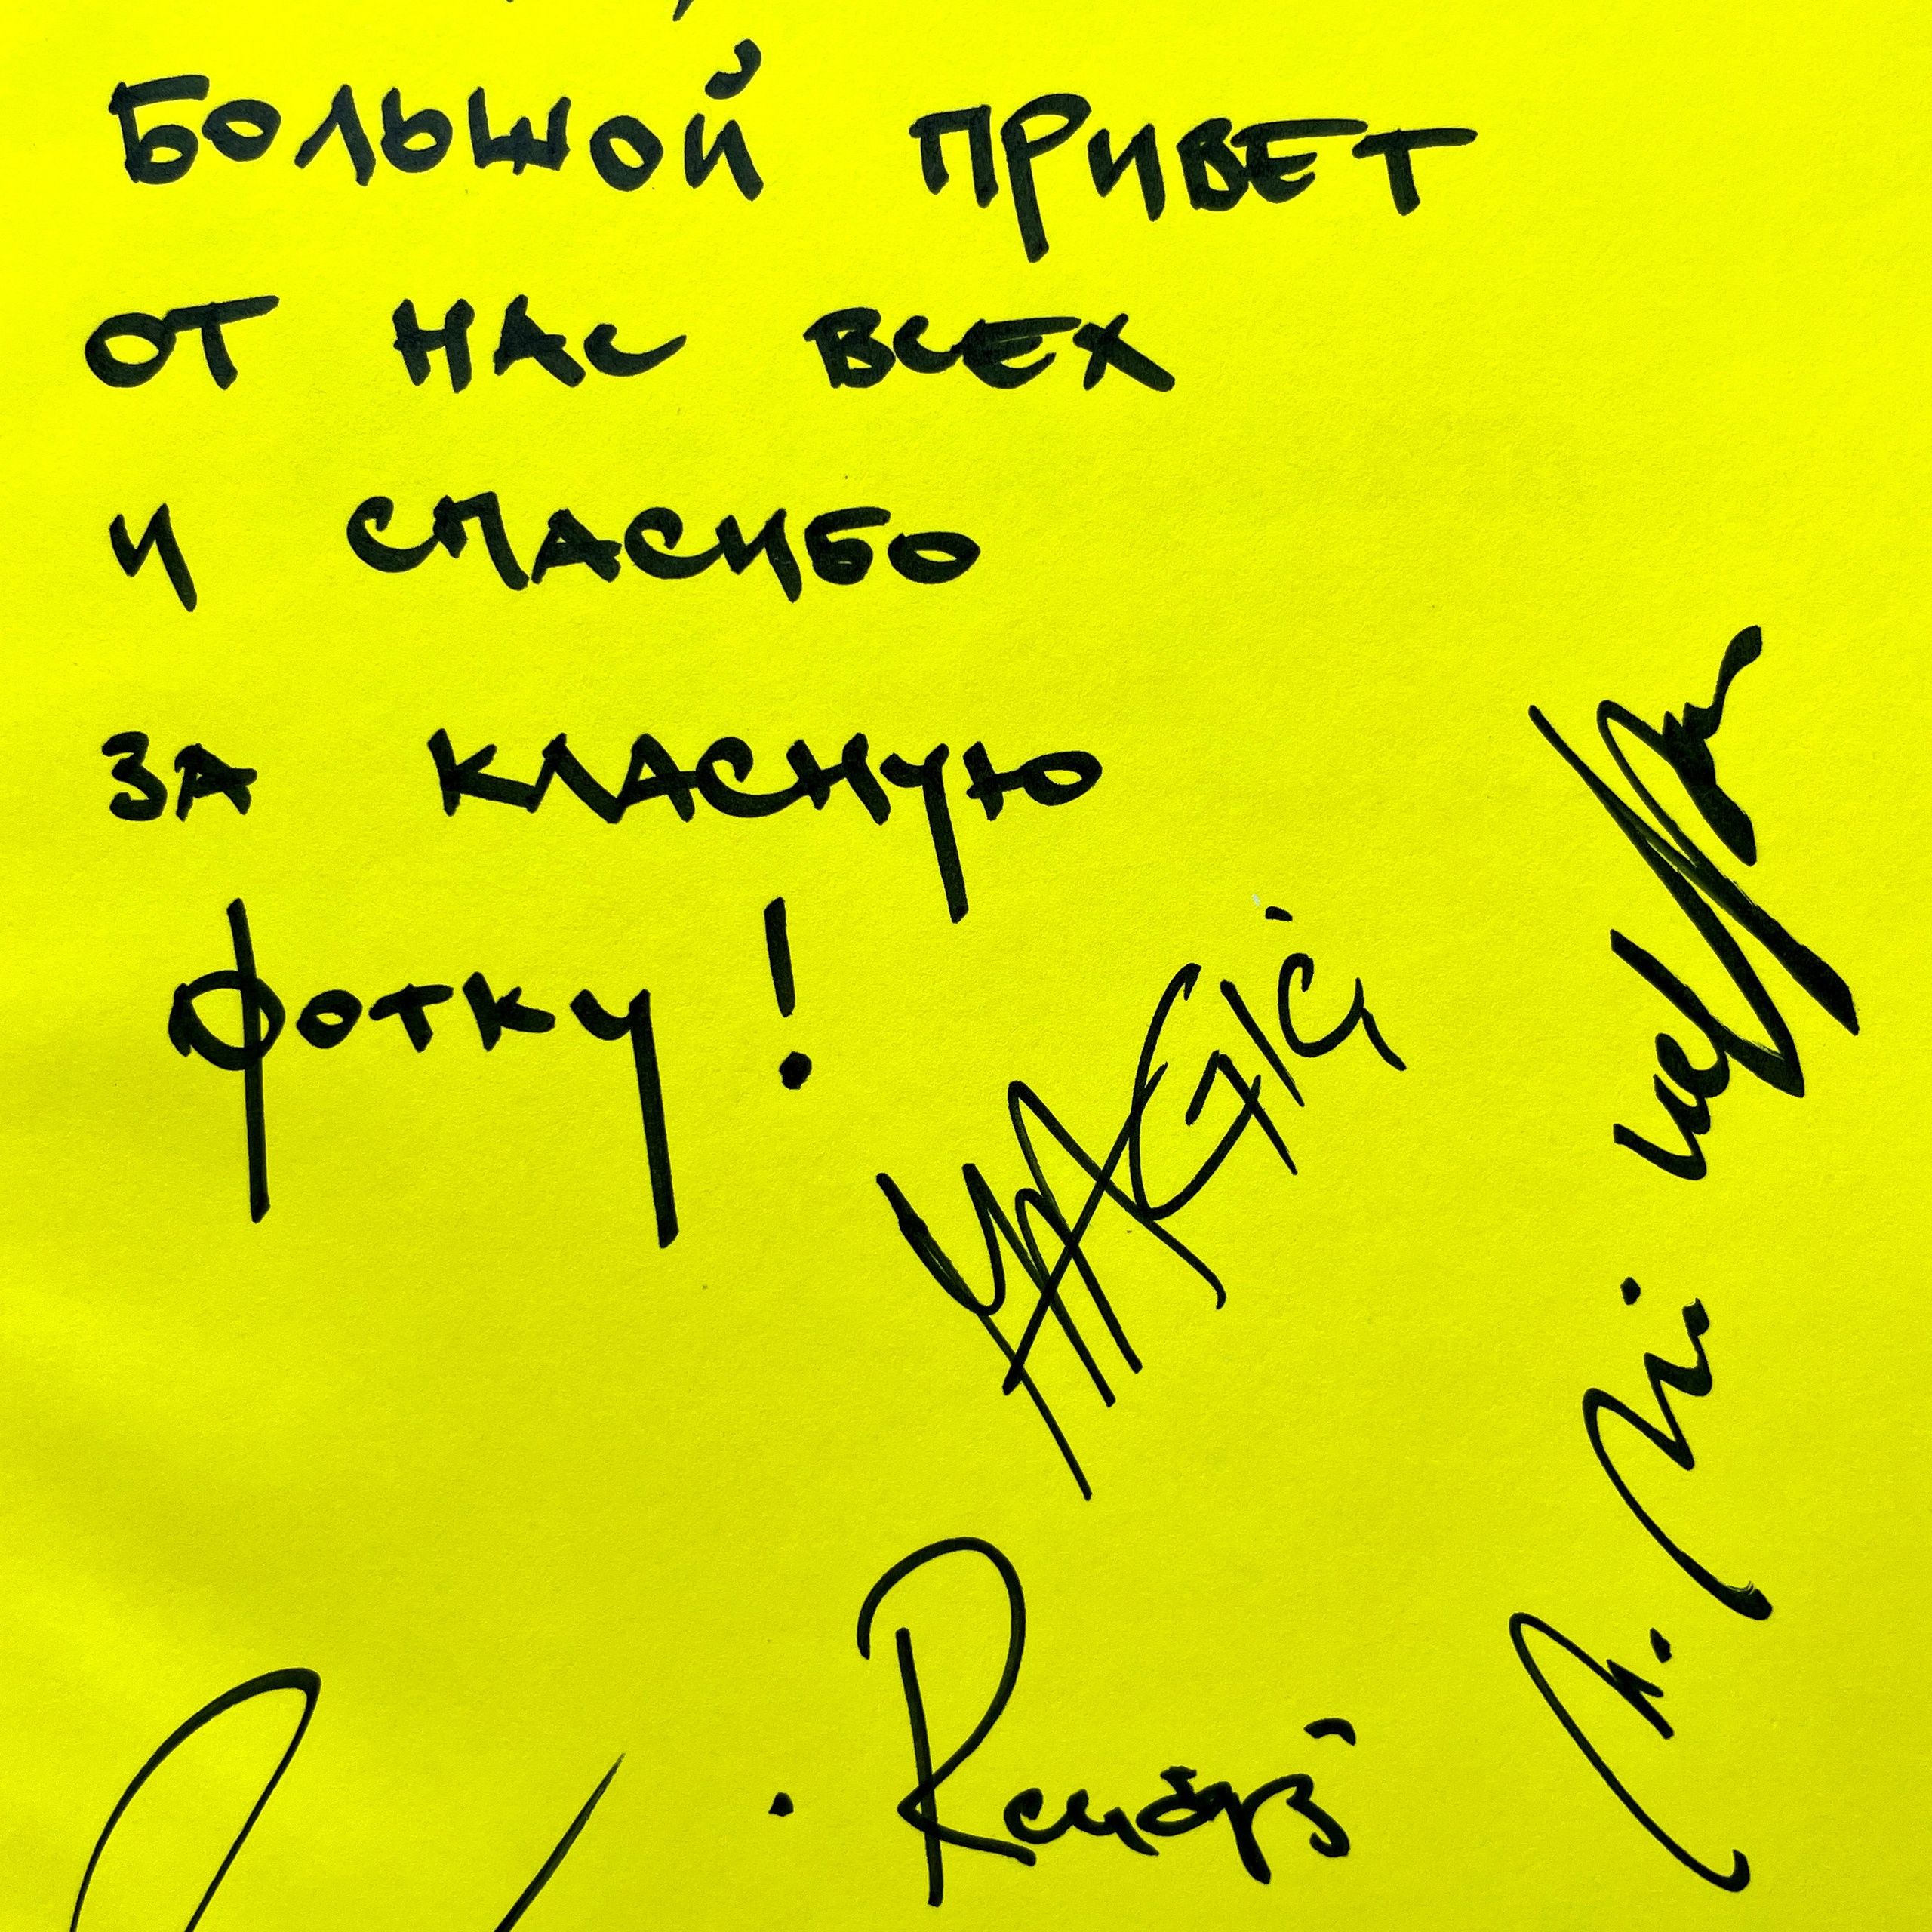 БОЛЬШОЙ ПРИВЕТ
ОТ НАС ВСЕХ
И СПАСИБО
ЗА КЛАСНУЮ
ФОТКУ!
MAGIC